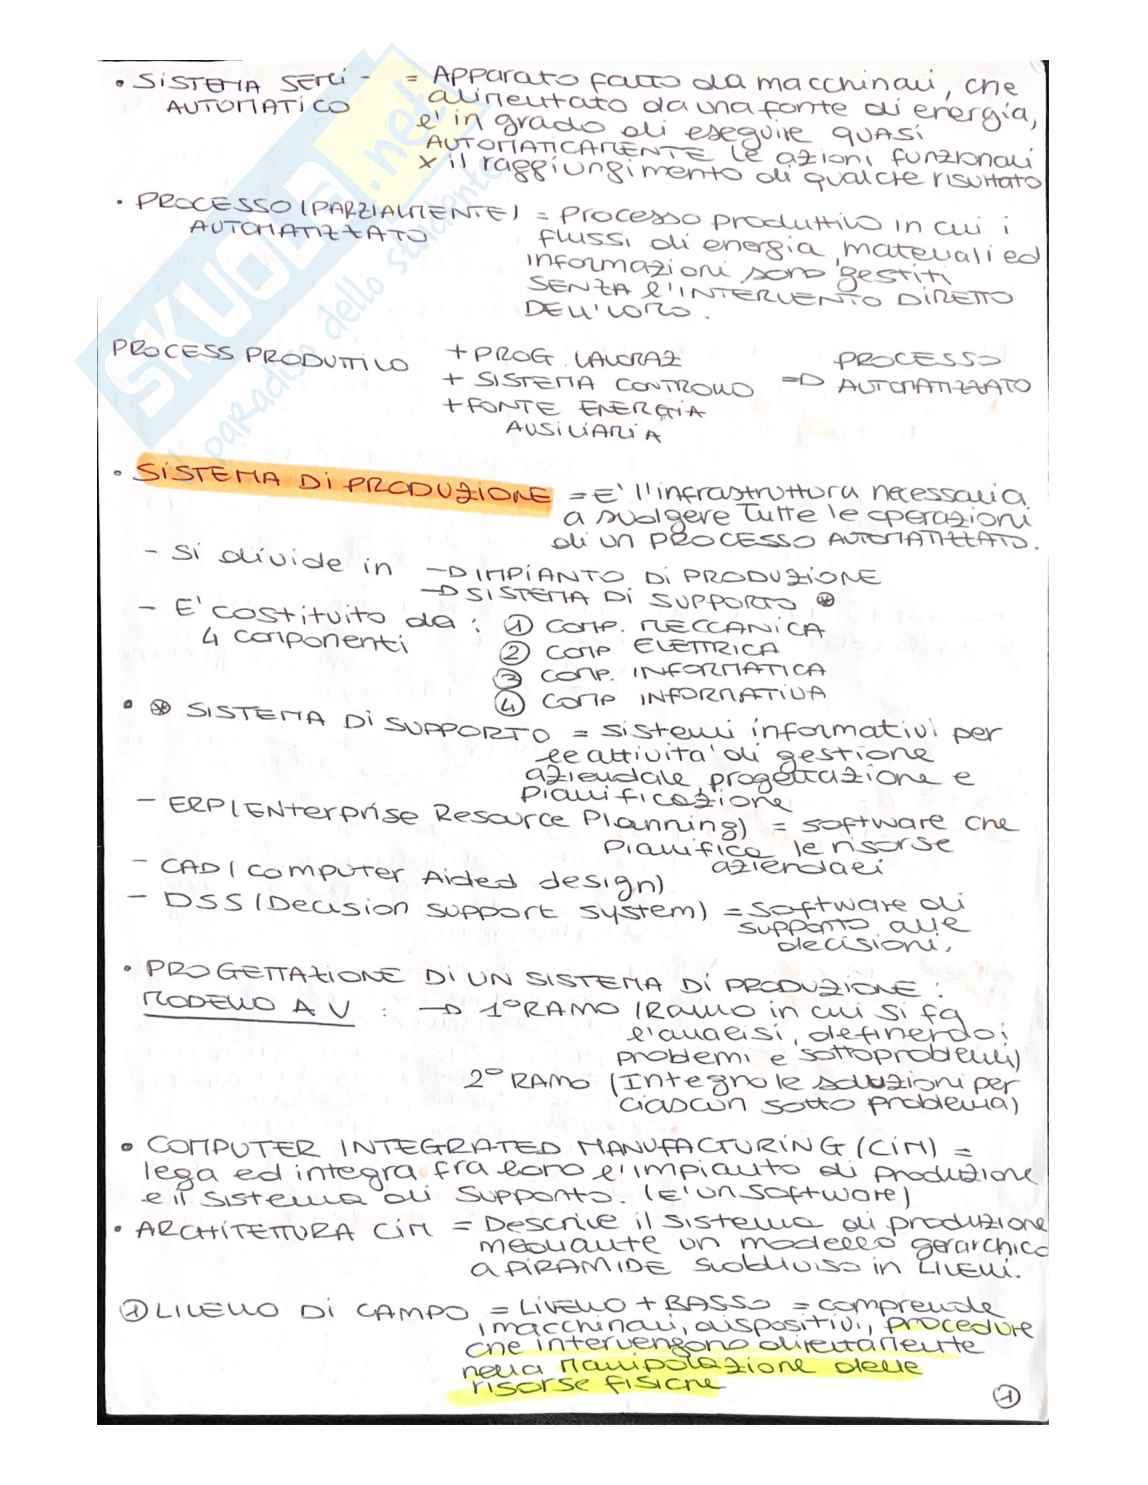 • SISTEMA SEMI- = Apparato fatto da macchinari, che
AUTOMATICO alimentato da una fonte di energia,
e' in grado di eseguire quasi
AUTOMATICAMENTE le azioni funzionali
x il raggiungimento di qualche risultato
• PROCESSO (PARZIALMENTE) = Processo produttivo in cui i
AUTOMATIZZATO flussi di energia, materiali ed
informazioni sono gestiti
SENZA l'INTERVENTO DIRETTO
DELL'UOMO.
PROCESS PRODUTTIVO + PROG. LAVORAZ => PROCESSO
+ SISTEMA CONTROLLO AUTOMATIZZATO
+ FONTE ENERGIA
AUSILIARIA
• SISTEMA DI PRODUZIONE = E' l'infrastruttura necessaria
a svolgere tutte le operazioni
di un PROCESSO AUTOMATIZZATO.
- Si divide in → IMPIANTO DI PRODUZIONE
→ SISTEMA DI SUPPORTO ⊛
- E' costituito da: ① COMP. MECCANICA
4 componenti ② COMP ELETTRICA
③ COMP. INFORMATICA
④ COMP INFORMATIVA
• ⊛ SISTEMA DI SUPPORTO = Sistemi informativi per
le attivita' di gestione
aziendale, progettazione e
pianificazione
- ERP (Enterprise Resource Planning) = software che
pianifica le risorse
aziendali
- CAD (Computer Aided design)
- DSS (Decision support system) = software di
supporto alle
decisioni.
• PROGETTAZIONE DI UN SISTEMA DI PRODUZIONE:
MODELLO A V : → 1° RAMO (Ramo in cui si fa
l'analisi, definendo i
problemi e sottoproblemi)
2° RAMO (Integro le soluzioni per
ciascun sotto problema)
• COMPUTER INTEGRATED MANUFACTURING (CIM) =
lega ed integra fra loro l'impianto di produzione
e il sistema di supporto. (E' un software)
• ARCHITETTURA CIM = Descrive il sistema di produzione
mediante un modello gerarchico
a PIRAMIDE suddiviso in LIVELLI.
① LIVELLO DI CAMPO = LIVELLO + BASSO = comprende
i macchinari, dispositivi, procedure
che intervengono direttamente
nella manipolazione delle
risorse fisiche
①
SKUOLA.net
il paradiso dello studente